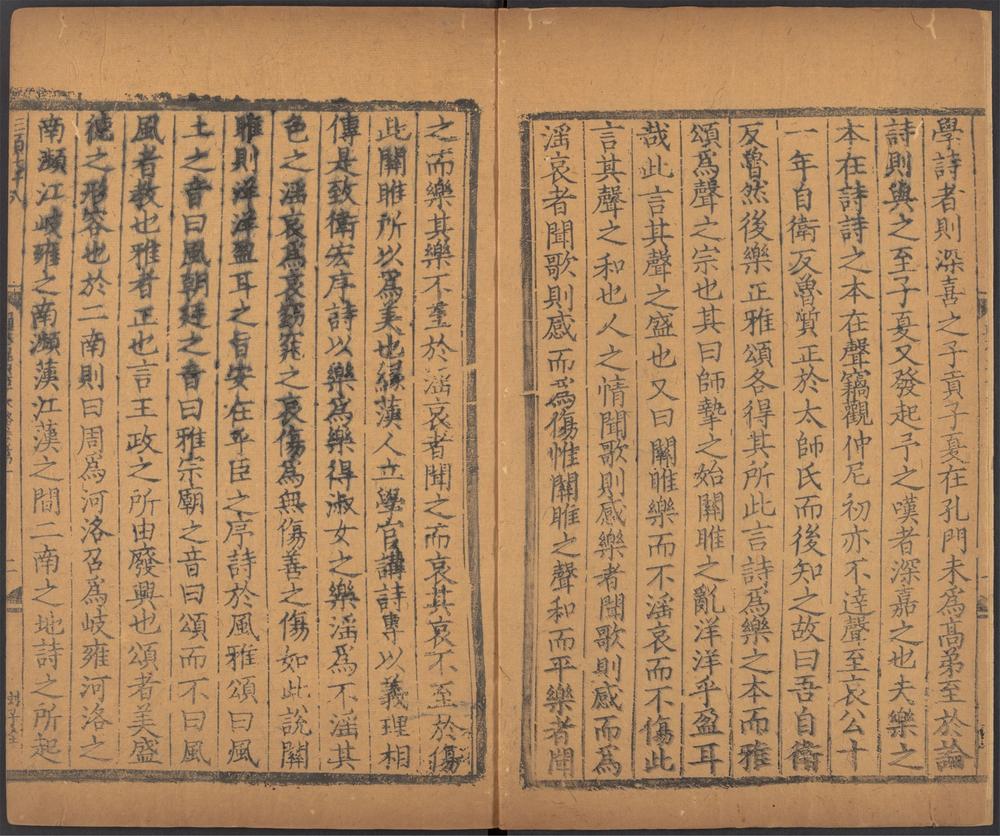 學詩者則深喜之子貢子夏在孔門未爲高弟至於論
詩則與之至子夏又發起予之嘆者深嘉之也夫樂之
本在詩詩之本在聲竊觀仲尼初亦不達聲至哀公十
一年自衛反魯質正於太師氏而後知之故曰吾自衛
反魯然後樂正雅頌各得其所此言詩爲樂之本而雅
頌爲聲之宗也其曰師摯之始關雎之亂洋洋乎盈耳
哉此言其聲之盛也又曰關雎樂而不滛哀而不傷此
言其聲之和也人之情聞歌則感樂者聞歌則感而爲
滛哀者聞歌則感而爲傷惟關雎之聲和而平樂者聞
之而樂其樂不至於滛哀者聞之而哀其哀不至於傷
此關雎所以爲美也緣漢人立學官講詩專以義理相
傳是致衛宏序詩以樂爲樂得淑女之樂滛爲不滛其
色之滛哀爲哀窈窕之哀傷爲無傷善之傷如此說關
雎則洋洋盈耳之旨安在乎臣之序詩於風雅頌曰風
土之音曰風朝廷之音曰雅宗廟之音曰頌而不曰風
風者教也雅者正也言王政之所由廢興也頌者美盛
德之形容也於二南則曰周爲河洛召爲岐雍河洛之
南瀕江岐雍之南瀕漢江漢之間二南之地詩之所起